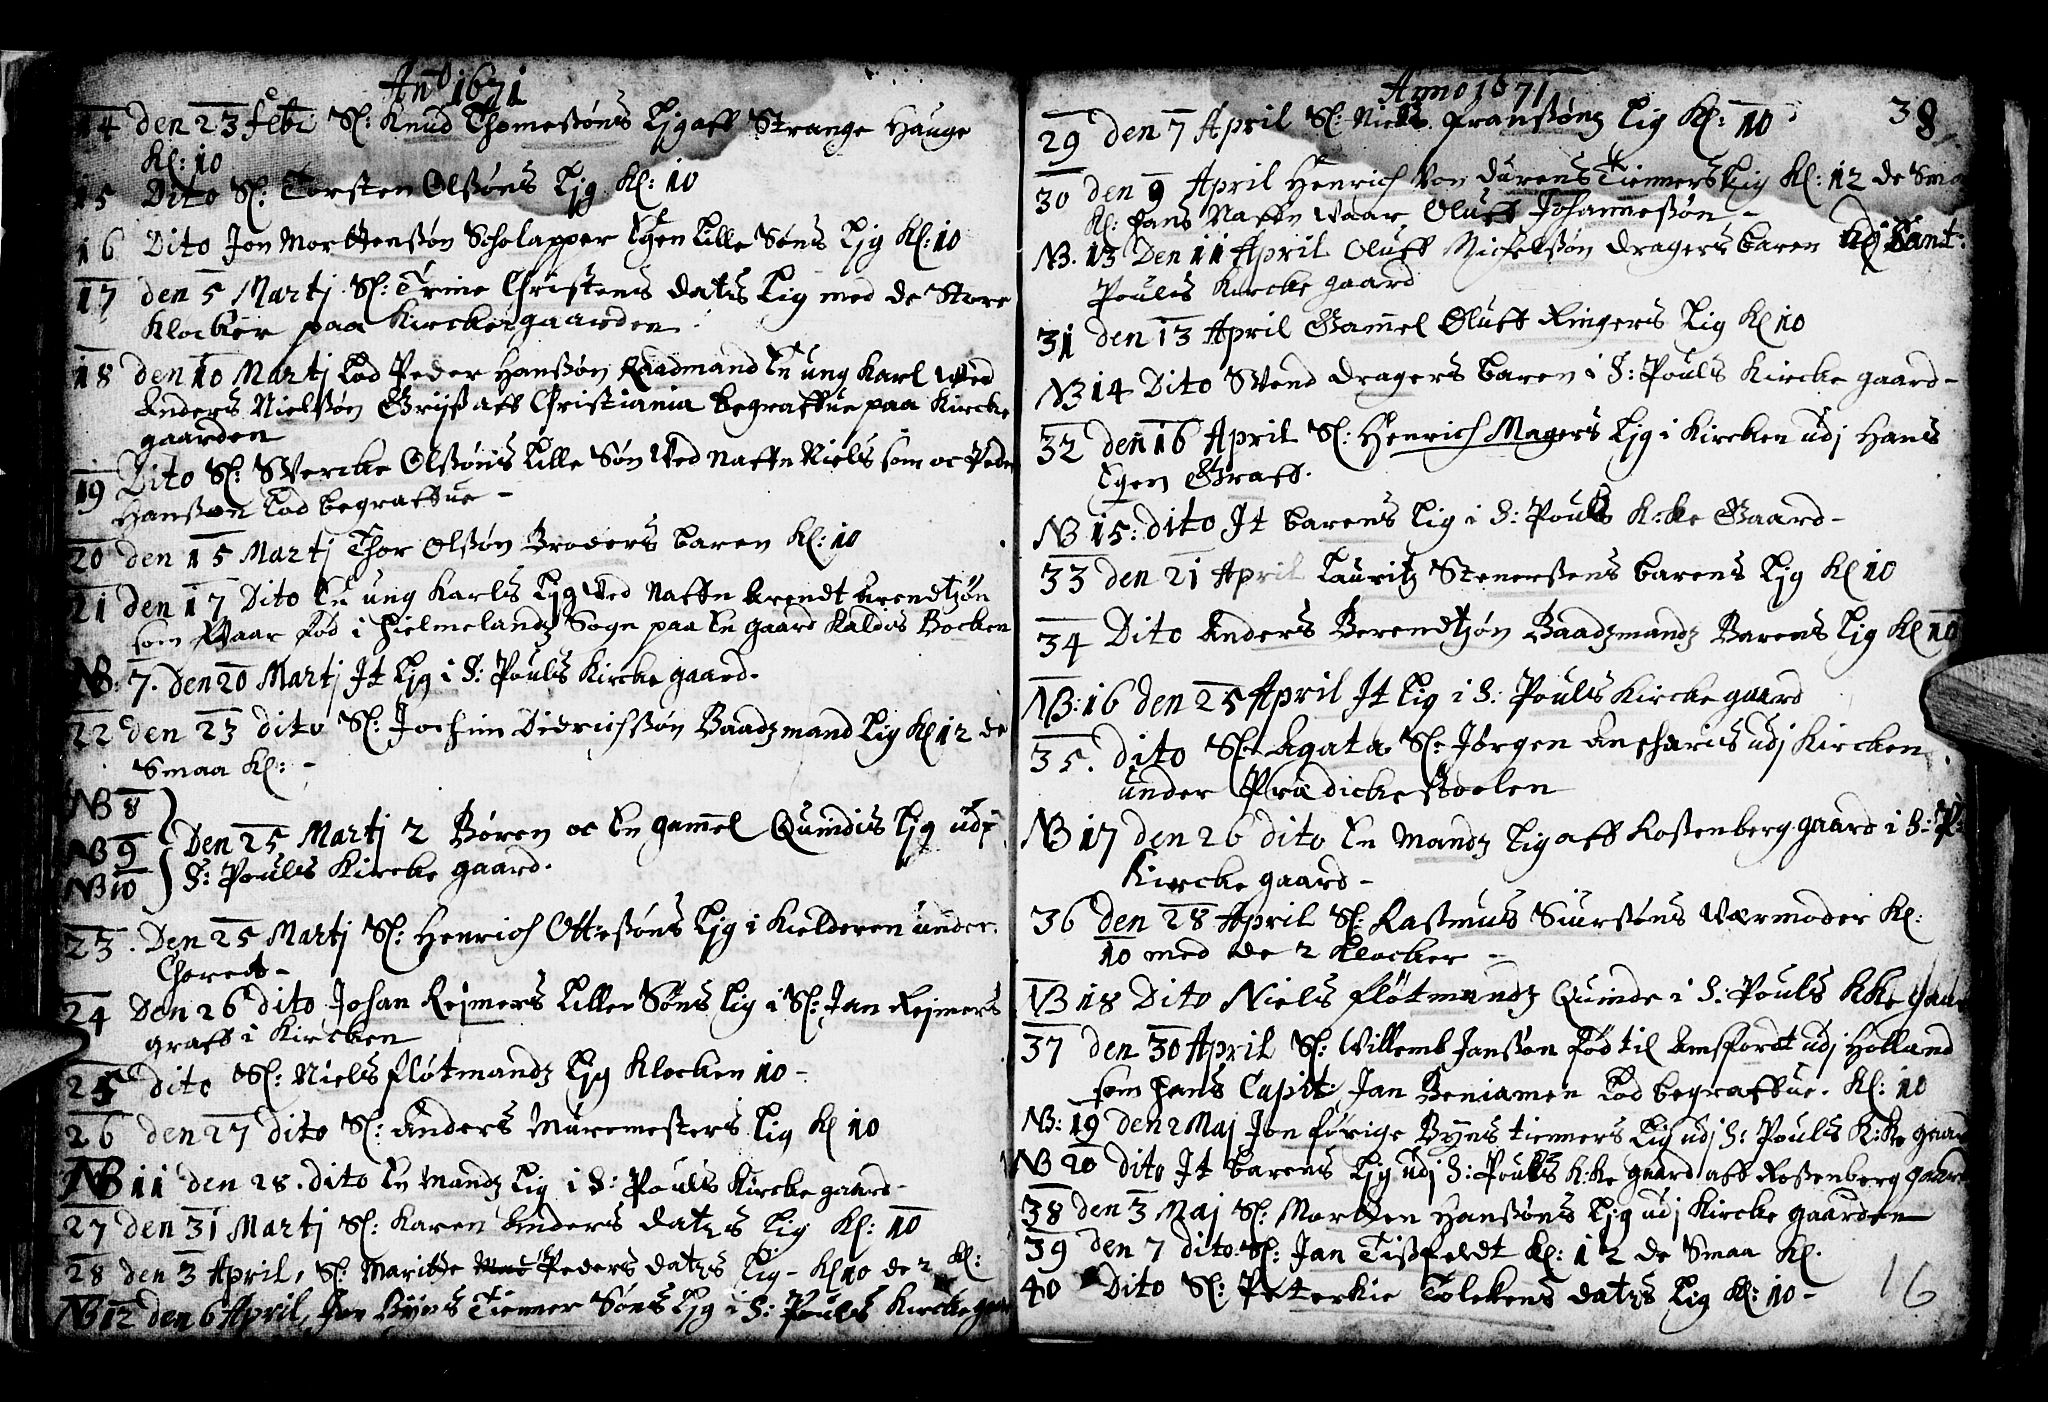 Anno 1671
14 den 23 febr Sl: Knud Thomessøns Ljg aff Strange Hauge
Kl: 10
15 Dito Sl: Torsten Olssøns Ljg Kl: 10
16 Dito Jon Morttenssøn Scholapper Egen Lille Søns Ljg Kl: 10
17 den 5 Martj Sl: Trine Christens datrs Lig med de Store
Klocker paa Kirckegaarden
18 den 10 Martj Lod Peder Hanssøn Raadmand En ung Karl Wed
Anders Nielssøn Grijss aff Christiania begraffue paa Kircke
gaarden
19 Dito Sl: Swercke Olssøns Lille Søn Wed Naffn Niels som oc Peder
Hanssøn Lod begraffue -
20 den 15 Martj Thor Olssøn Broders baren Kl: 10
21 den 17 Dito En ung Karls Ljg Wed Naffn Arendt Arendtzøn
som Waar Fød i Hielmelandz Sogn paa En gaard Kaldis Bocken
NB: 7. den 20 Martj Jt Ljg i S: Pouls Kircke gaard.
22 den 23 dito Sl: Jochim Didrichssøn Baadzmand Lig Kl 12 de
Smaa Kl: -
NB 8
NB 9 Den 25 Martj 2 Børen oc En gammel Quindis Ljg udj
NB 10 S: Pouls Kircke gaard.
23. Den 25 Martj Sl: Henrich Ottessøns Ljg i Kielderen under
Choret -
24 Den 26 dito Johan Rejmers Lille Søns Lig i Sl: Jan Rejmers
graff i Kircken
25 dito Sl: Niels fløtmandz Ljg Klocken 10 -
26 den 27 dito Sl: Anders Muremesters Lig Kl 10
NB 11 den 28. dito En Mandz Lig i S: Pouls Kircke gaard -
27 den 31 Martj Sl: Karen Anders datrs Lig Kl: 10
28 den 3 April, Sl: Maritte Peders datrs Lig - Kl 10 de 2 Kl:
NB 12 den 6 April, Jon Byns Tienner Søns Ljg i S: Pouls Kirckegaar
Anno 1671
38
29 den 7 April Sl: Niels Franssønz Lig Kl: 10
30 den 9 April Henrich Von Durens Tienners Lig Kl: 12 de Smaa
Kl: Hans Naffn Waar Oluff Johannessøn -
NB. 13 Den 11 April Oluff Michelssøn dragers baren udj Sant:
Poules Kircke gaard
31 den 13 April Gammel Oluff Ringers Lig Kl 10
NB 14 Dito Swend dragers baren i S: Pouls Kircke gaard -
32 den 16 April Sl: Henrich Magers Ljg i Kircken udj Hans
Egen Graff.
NB 15: dito Jt barens Lig i S: Pouls K:ke Gaard -
33 den 21 April Lauritz Stenerssens barens Ljg Kl 10
34 Dito Anders Berendtzøn Baadzmandz Barens Lig Kl 10
NB: 16 den 25 April Jt Lig i S: Pouls Kircke gaard
35. dito Sl: Agata Sl: Jørgen Ancharis udj Kircken
under Prædickestoelen
NB 17 den 26 dito En Mandz Lig aff Rossenberg gaard i S: P:
Kircke gaard -
36 den 28 April Sl: Rassmus Siurssøns Værmoder Kl:
10 med de 2 Klocker -
NB 18 Dito Niels Fløtmandz Quinde i S: Pouls Kke gaard
37 den 30 April Sl: Willemb Janssøn Fød til Amsfordt udj Holland
som hans Capit: Jan Beniamen Lod begraffue. Kl: 10
NB: 19 den 2 Maj Jon førige Byns tienners Lig udj S: Pouls K:ke gaar
NB 20 dito Jt barens Ljg udj S: Pouls K:ke gaard aff Rossenberg gaard
38 den 3 Maj Sl: Mortten Hanssøns Ljg udj Kircke gaarden
39 den 7 dito Sl: Jan Tissfeldt Kl: 12 de Smaa Kl.
40 Dito Sl: Peterkie Tølekens datrs Lig Kl: 10 -
16